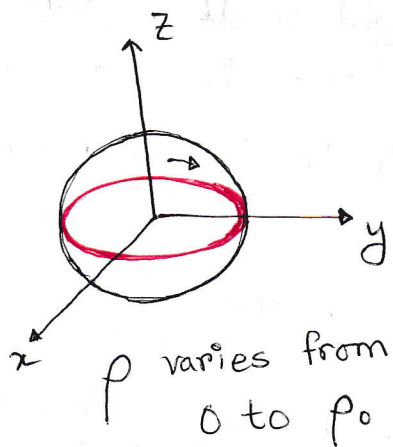 z
y
x
ρ varies from
0 to ρ₀